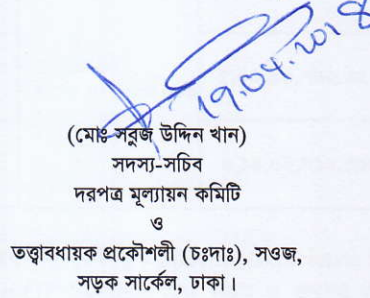 19.04.2018
(মোঃ সবুজ উদ্দিন খান)
সদস্য-সচিব
দরপত্র মূল্যায়ন কমিটি
ও
তত্ত্বাবধায়ক প্রকৌশলী (চঃদাঃ), সওজ,
সড়ক সার্কেল, ঢাকা।